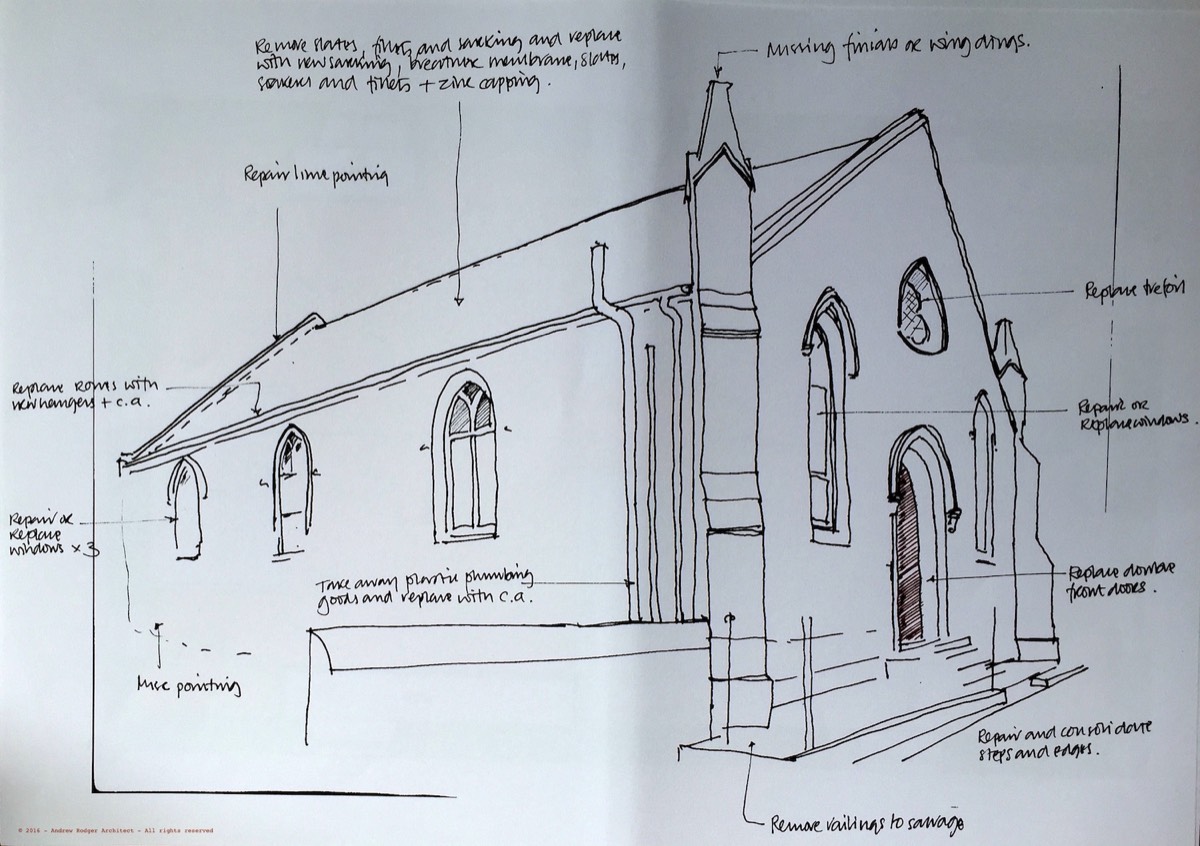 Remove slates, fillets and sarking and replace
with new sarking, breather membrane, slates,
soakers and fillets + zinc capping.
Missing finials or wing dings.
Repair lime pointing
Replace trefoil
Replace rones with
new hangers + c.a.
Repair or
Replace windows.
Repair or
Replace
windows x 3
Take away plastic plumbing
goods and replace with c.a.
Replace double
front doors.
Misc pointing
Repair and consolidate
steps and edges.
Remove railings to salvage
© 2016 - Andrew Rodger Architect - All rights reserved